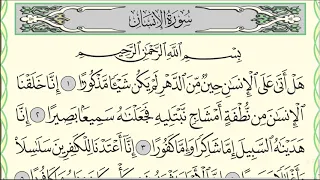 سُورَةُ الإِنسَانِ
بِسْمِ ٱللَّهِ ٱلرَّحْمَٰنِ ٱلرَّحِيمِ
هَلْ أَتَىٰ عَلَى ٱلْإِنسَٰنِ حِينٌ مِّنَ ٱلدَّهْرِ لَمْ يَكُن شَيْـًٔا مَّذْكُورًا ١ إِنَّا خَلَقْنَا
ٱلْإِنسَٰنَ مِن نُّطْفَةٍ أَمْشَاجٍ نَّبْتَلِيهِ فَجَعَلْنَٰهُ سَمِيعًۢا بَصِيرًا ٢ إِنَّا
هَدَيْنَٰهُ ٱلسَّبِيلَ إِمَّا شَاكِرًا وَإِمَّا كَفُورًا ٣ إِنَّآ أَعْتَدْنَا لِلْكَٰفِرِينَ سَلَٰسِلَا۟